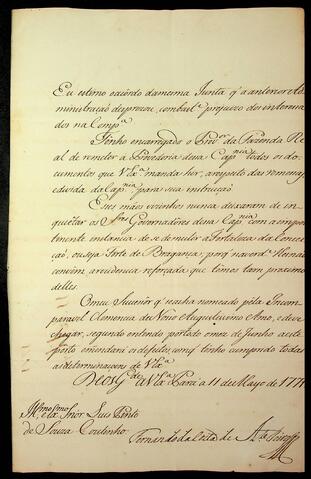 Eu estimo o acôrdo da mesma Junta q' a anterior Ad
ministração desprezou, com bast.e prejuizo dos interessa
dos na Comp.a
Tenho encarregado o Prov.or da Fazenda Re
al de remeter á Provedoria dessa Cap.nia todos os do
cumentos que V. Ex.a manda hir, a respeito das
da Cap.nia para sua instrucção
Esses máos vezinhos nunca deixaram de in
quietar os S.res Governadores dessa Cap.nia com a impor
tinente instancia de se demolir a Fortaleza da Concei
çaõ, ou seja Forte de Bragança; porq'
convem a rezidencia reforçada que temos tam proximo
delles.
O meu Sucessor q' se acha nomeado pela Incom
paravel Clemencia do Nosso Augustissimo Amo, deve
chegar, segundo entendo por todo o mez de Junho a este
porto e emendará os defeitos, com q' tenho cumprido todas
as determinaçoens de V. Ex.a
Deos g.e a V. Ex.a Pará a 11 de Mayo de 177
Ill.mo e Ex.mo Snor Luis Pinto
de Souza Coutinho.
Fernando da Costa de At.de Teive